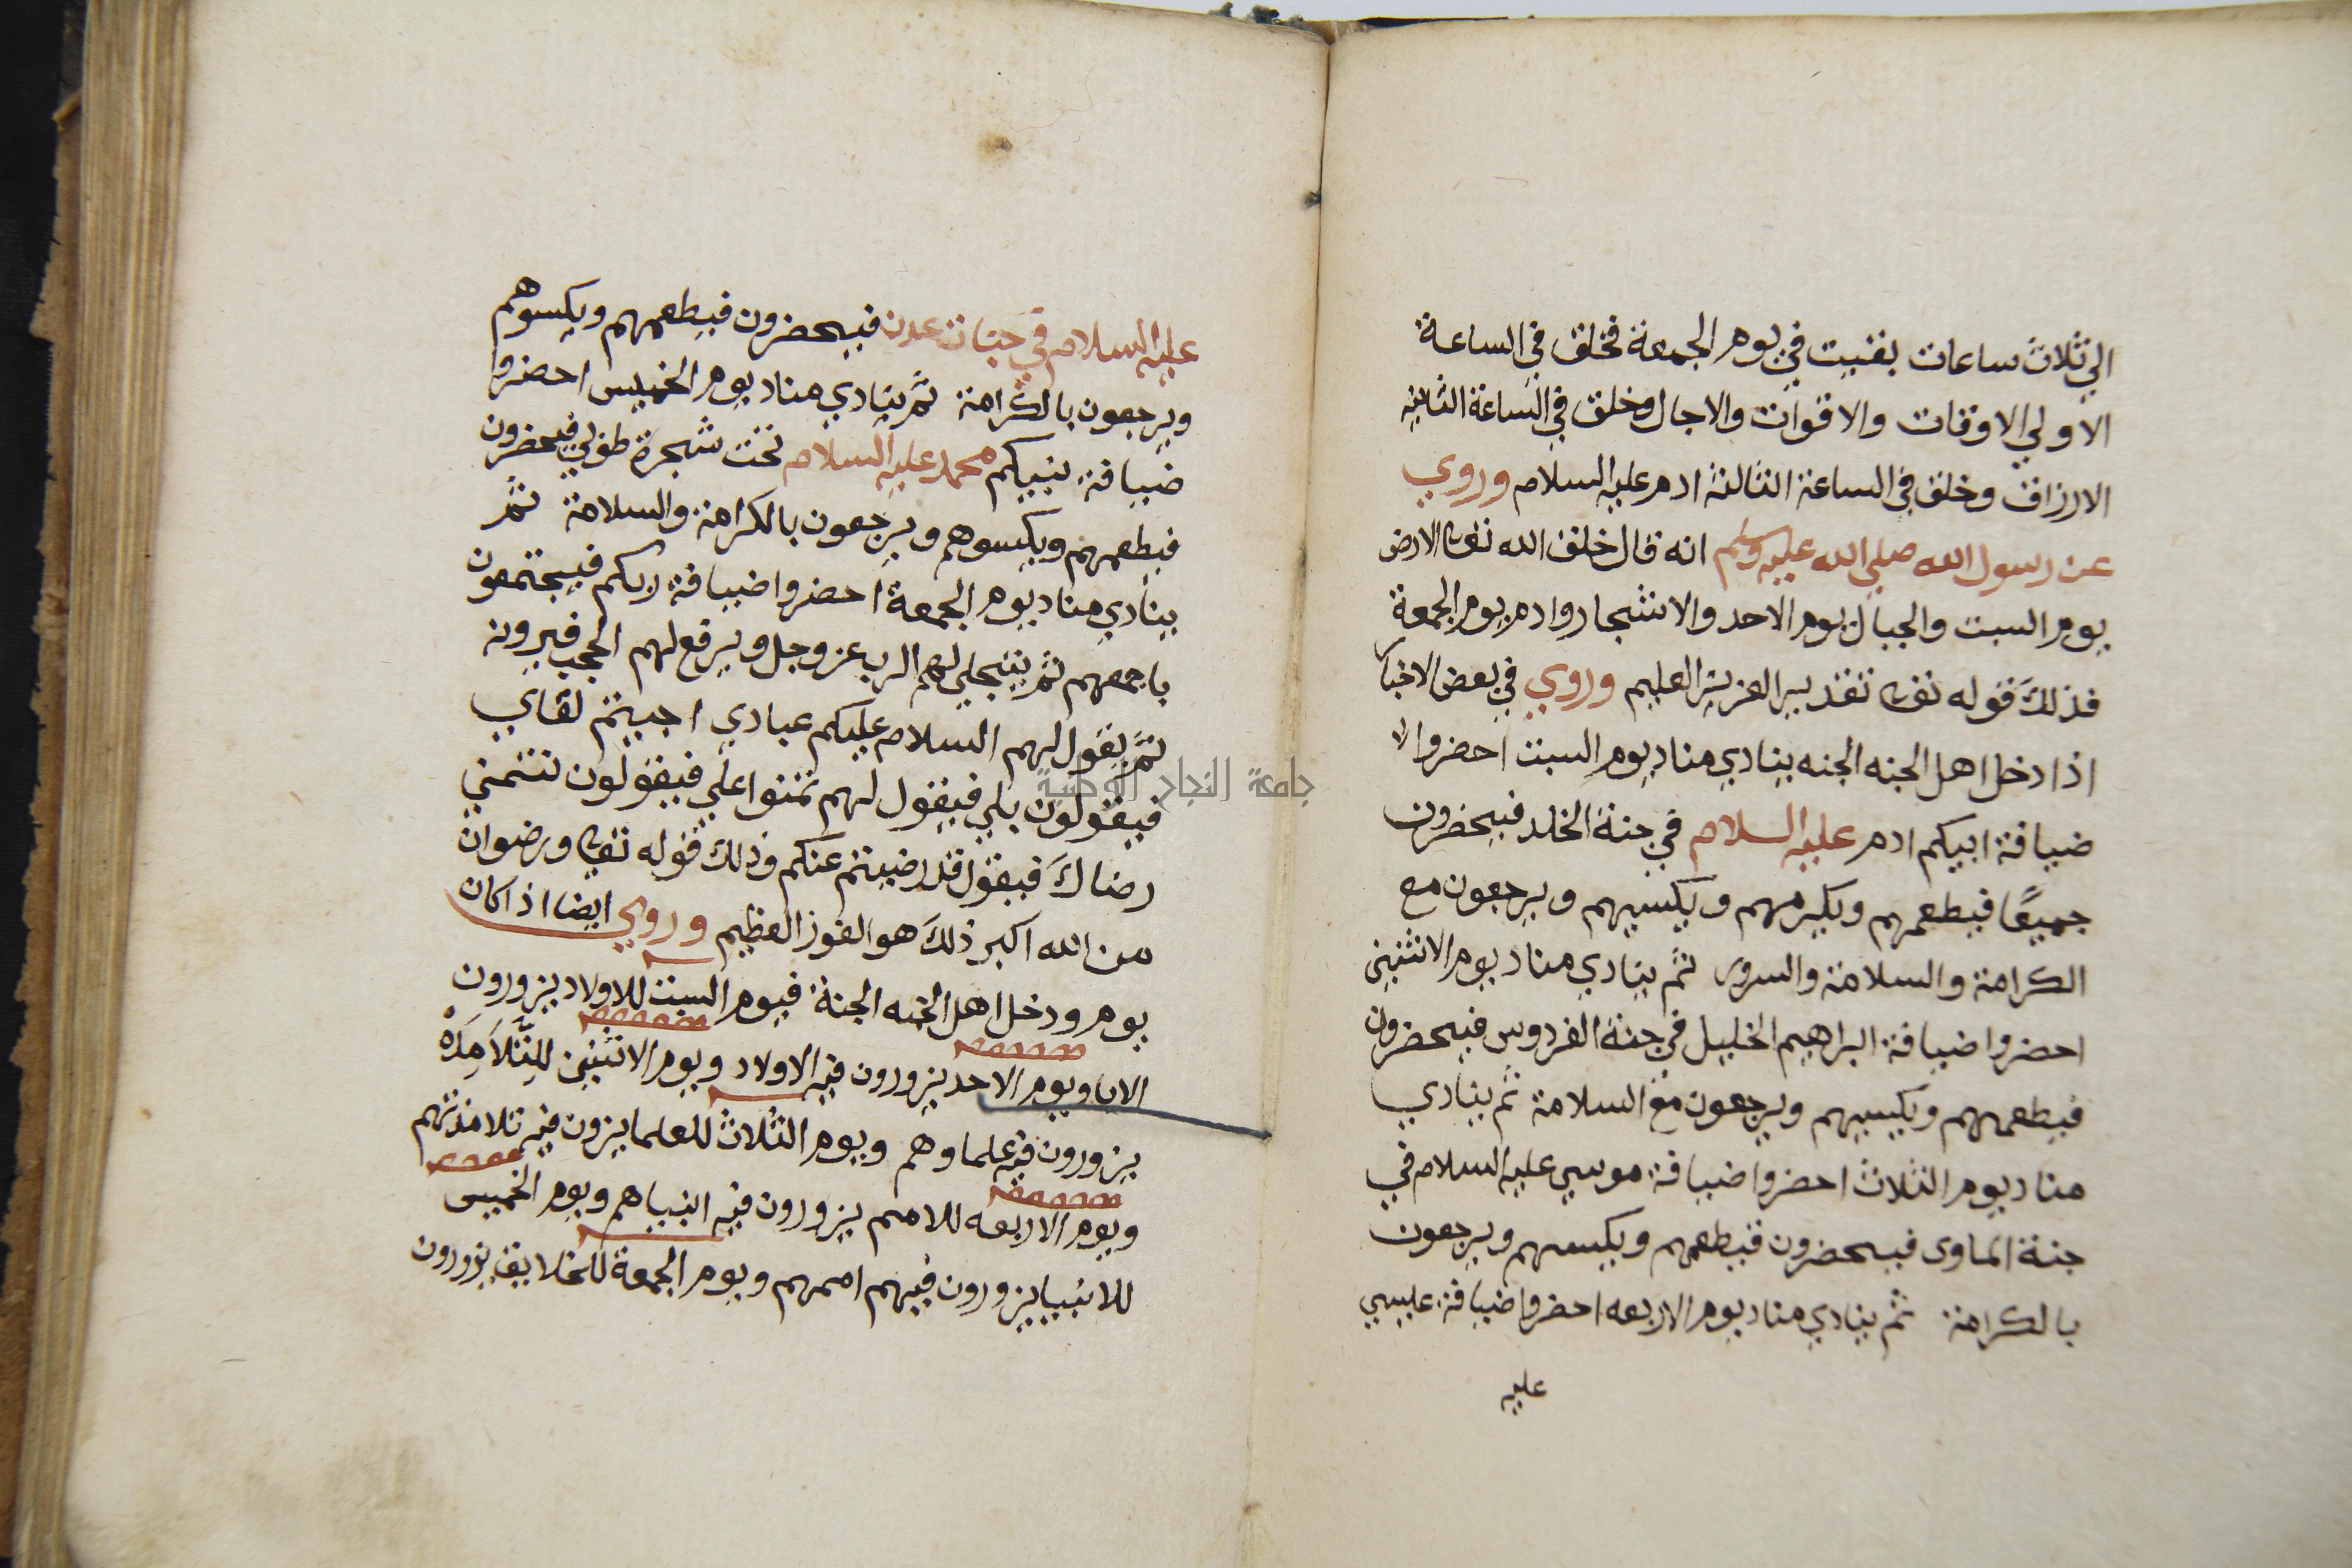 الي ثلاث ساعات بقيت في يوم الجمعة فخلق في الساعة
الاولي الاوقات والاقوات والاجال وخلق في الساعة الثانيه
الارزاق وخلق في الساعة الثالثة ادم عليه السلام وروي
عن رسول الله صلي الله عليه وسلم انه قال خلق الله تعالى الارض
يوم السبت والجبال يوم الاحد والاشجار وادم يوم الجمعة
فذلك قوله تعالى تقدير العزيز العليم وروي في بعض الاخبار
اذا دخل اهل الجنه الجنه ينادي مناد يوم السبت احضروا الا
ضيافة ابيكم ادم عليه السلام في جنة الخلد فيحضرون
جميعًا فيطعمهم ويكرمهم ويكسيهم ويرجعون مع
الكرامة والسلامة والسرور ثم ينادي مناد يوم الاثنين
احضروا ضيافة ابراهيم الخليل في جنة الفردوس فيحضرون
فيطعمهم ويكسيهم ويرجعون مع السلامة ثم ينادي
مناد يوم الثلاث احضروا ضيافة موسي عليه السلام في
جنة الماوى فيحضرون فيطعمهم ويكسهم ويرجعون
بالكرامة ثم ينادي مناد يوم الاربعه احضروا ضيافة عيسي
عليه
عليه السلام في جنات عدن فيحضرون فيطعمهم ويكسوهم
ويرجعون بالكرامة ثم ينادي مناد يوم الخميس احضروا
ضيافة نبيكم محمد عليه السلام تحت شجرة طوبي فيحضرون
فيطعمهم ويكسوهم ويرجعون بالكرامة والسلامة ثم
ينادي مناد يوم الجمعة احضروا ضيافة ربكم فيجتمعون
باجمعهم ثم يتجلي لهم الرب عز وجل ويرفع لهم الحجب فيرونه
ثم يقول لهم السلام عليكم عبادي اجبتم لقاي
فيقولون بلي فيقول لهم تمنوا علي فيقولون نتمني
رضاك فيقول قد رضيتم عنكم وذلك قوله تعالى ورضوان
من الله اكبر ذلك هو الفوز العظيم وروي ايضا اذا كان
يوم ودخل اهل الجنه الجنة فيوم السبت للاولاد يزورون
الابا ويوم الاحد يزورون فيه الاولاد ويوم الاثنين للتلامده
يزورون فيه علماوهم ويوم الثلاث للعلما يزون فيه تلامذتهم
ويوم الاربعه للامم يزورون فيه انبياهم ويوم الخميس
للانبيا يزورون فيهم اممهم ويوم الجمعة للخلايق يزورون
جامعة النجاح الوطنية